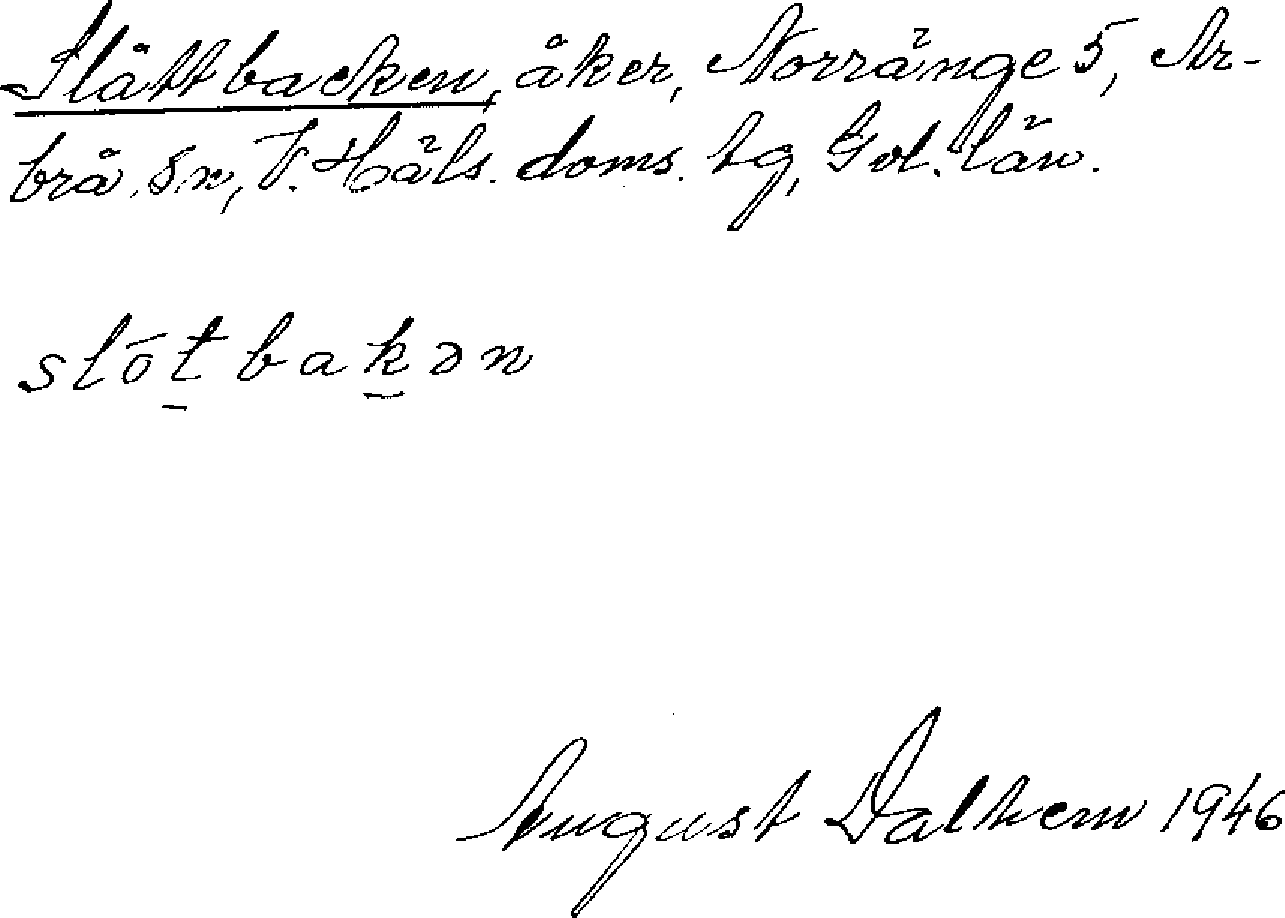 Slåttbacken, åker, Norränge 5, Ar-
brå sn, V. Häls. doms. tg, Gvl. län.
slȯt̠bak̠ən
August Dalkem 1946